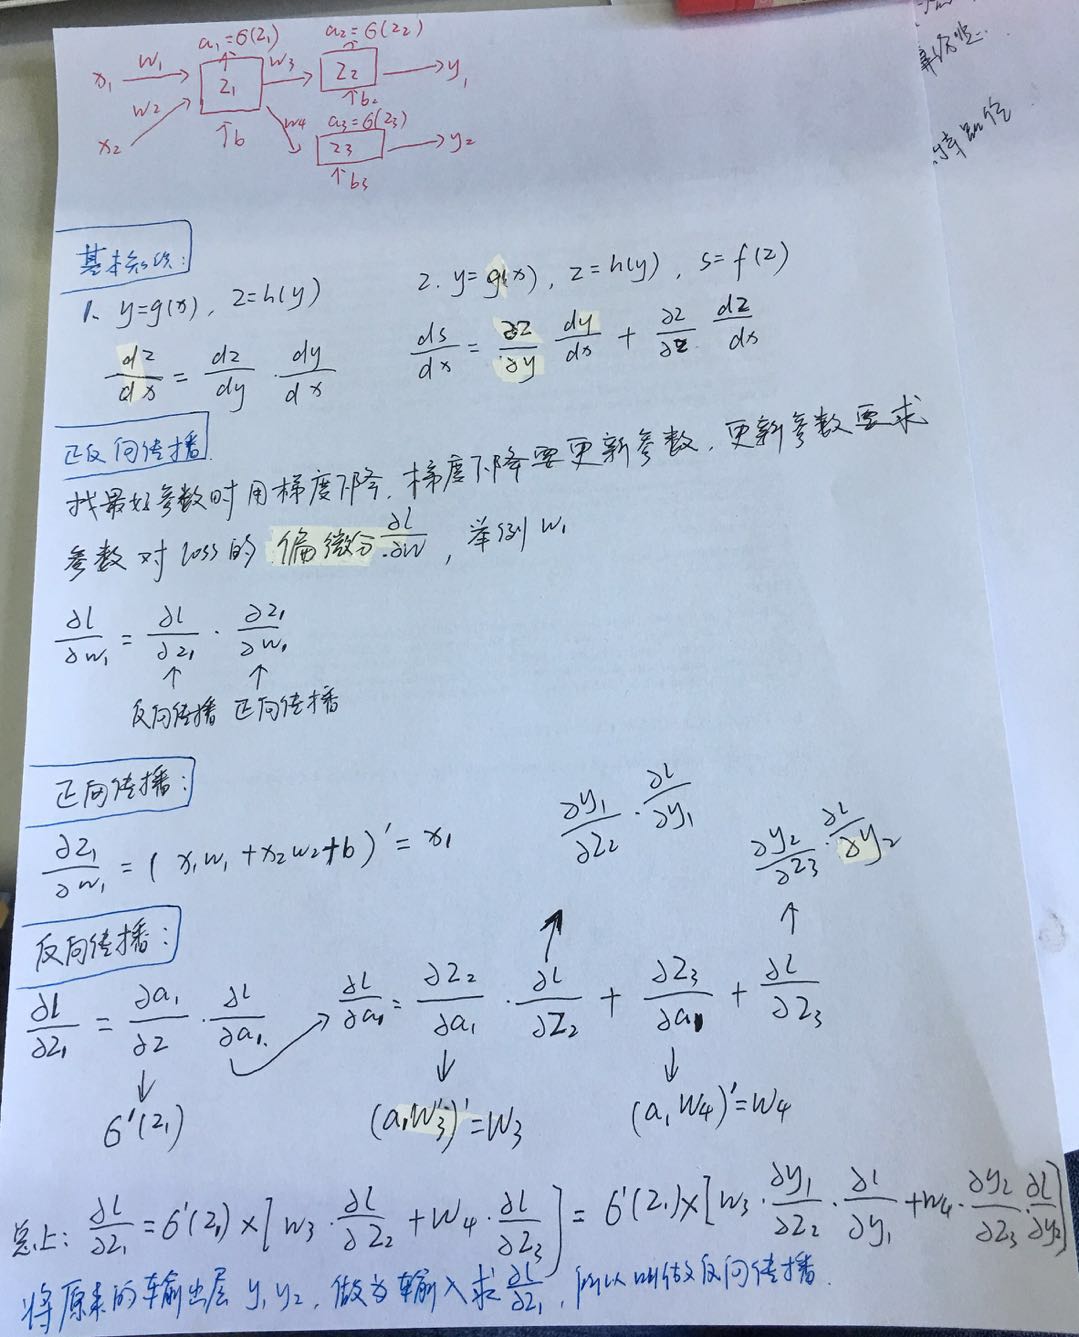 a₁=б(z₁) a₂=б(z₂)
x₁ w₁ z₁ w₃ z₂ y₁
w₂ b₂
x₂ b w₄ a₃=б(z₃)
z₃ y₂
b₃
基本知识:
1、y=g(x), z=h(y)
dz/dx = dz/dy · dy/dx
2. y=g(x), z=h(y), s=f(z)
ds/dx = ∂z/∂y dy/dx + ∂z/∂z dz/dx
正反向传播
找最好参数时用梯度下降,梯度下降要更新参数,更新参数要求
参数对loss的偏微分∂l/∂w, 举例w₁
∂l/∂w₁ = ∂l/∂z₁ · ∂z₁/∂w₁
↑ ↑
反向传播 正向传播
正向传播:
∂z₁/∂w₁ = (x₁w₁+x₂w₂+b)' = x₁
∂y₁/∂z₂ · ∂l/∂y₁
∂y₂/∂z₃ · ∂l/∂y₂
反向传播:
∂l/∂z₁ = ∂a₁/∂z · ∂l/∂a₁ → ∂l/∂a₁ = ∂z₂/∂a₁ · ∂l/∂z₂ + ∂z₃/∂a₁ + ∂l/∂z₃
↓ ↓ ↓
б'(z₁) (a₁w₃')'=w₃ (a₁w₄)'=w₄
总上: ∂l/∂z₁ = б'(z₁)×[w₃·∂l/∂z₂ + w₄·∂l/∂z₃] = б'(z₁)×[w₃·∂y₁/∂z₂·∂l/∂y₁ + w₄·∂y₂/∂z₃·∂l/∂y₂]
将原来的输出层y₁y₂,做为输入求∂l/∂z₁,所以叫做反向传播.